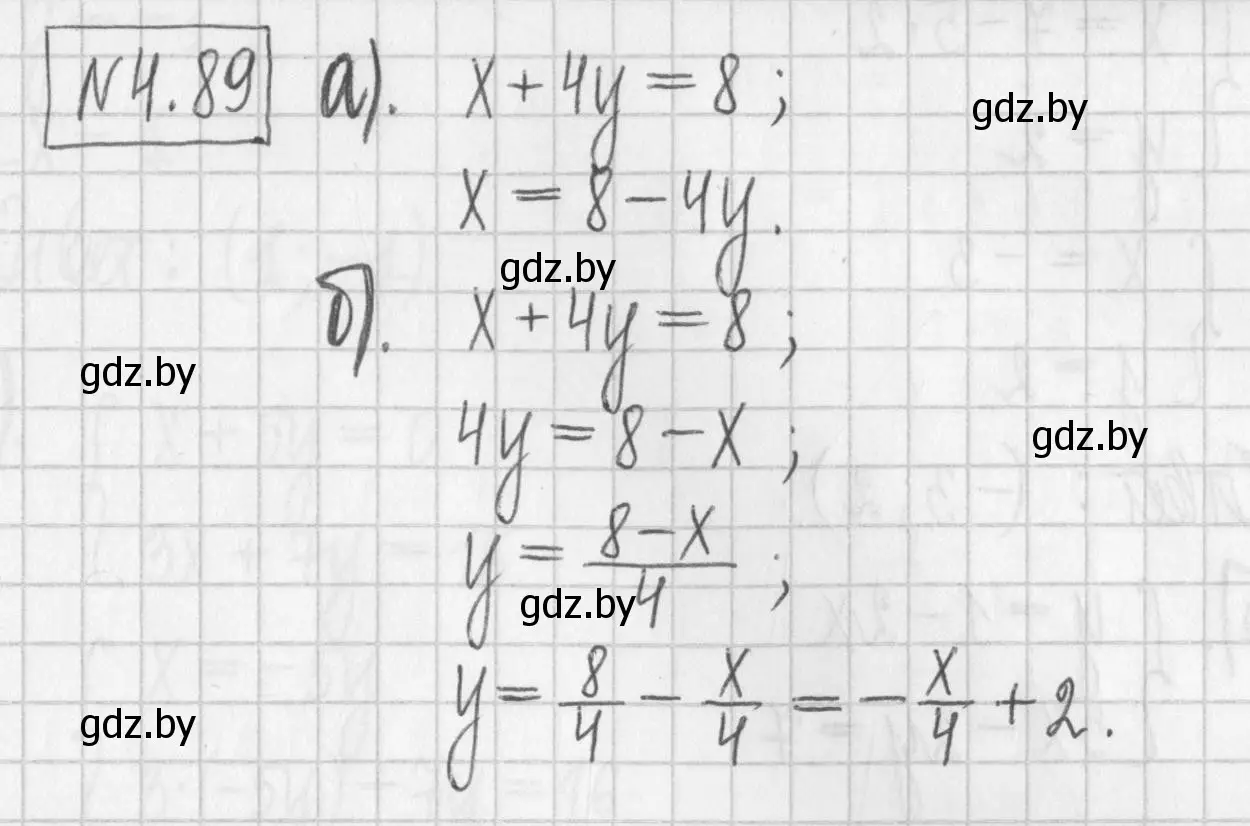 №4.89 а). x + 4y = 8 ;
gdz.by
x = 8 - 4y.
gdz.by
б). x + 4y = 8 ;
gdz.by
4y = 8 - x ;
gdz.by
y = (8 - x)/4 ;
gdz.by
y = 8/4 - x/4 = - x/4 + 2.
gdz.by